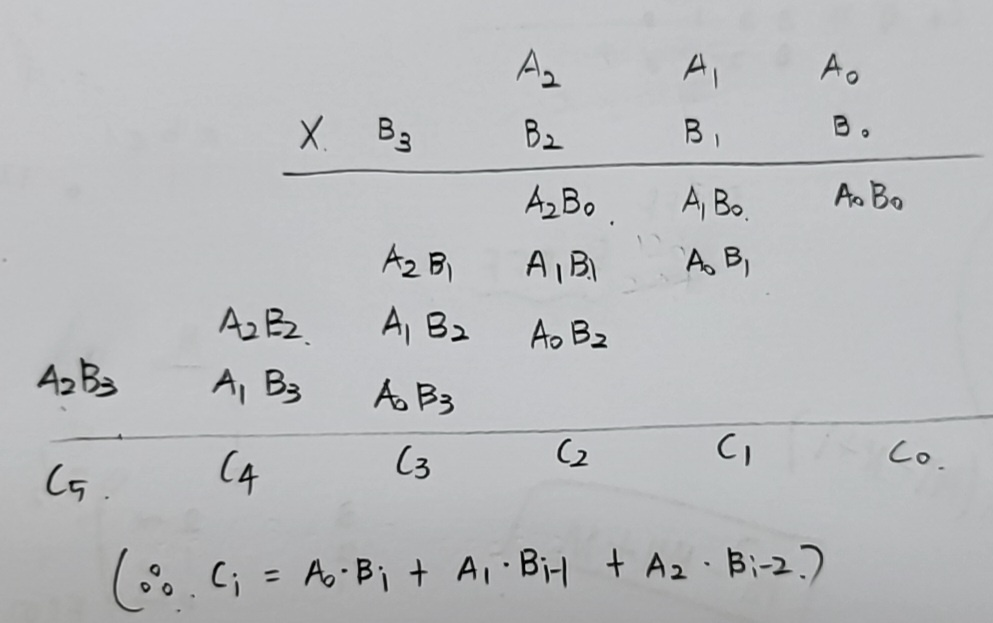 A₂ A₁ A₀
X. B₃ B₂ B₁ B₀
A₂B₀. A₁B₀. A₀B₀
A₂B₁ A₁B₁ A₀B₁
A₂B₂. A₁B₂ A₀B₂
A₂B₃ A₁B₃ A₀B₃
C₅. C₄ C₃ C₂ C₁ C₀.
(∴. Cᵢ = A₀·Bᵢ + A₁·Bᵢ₋₁ + A₂·Bᵢ₋₂.)